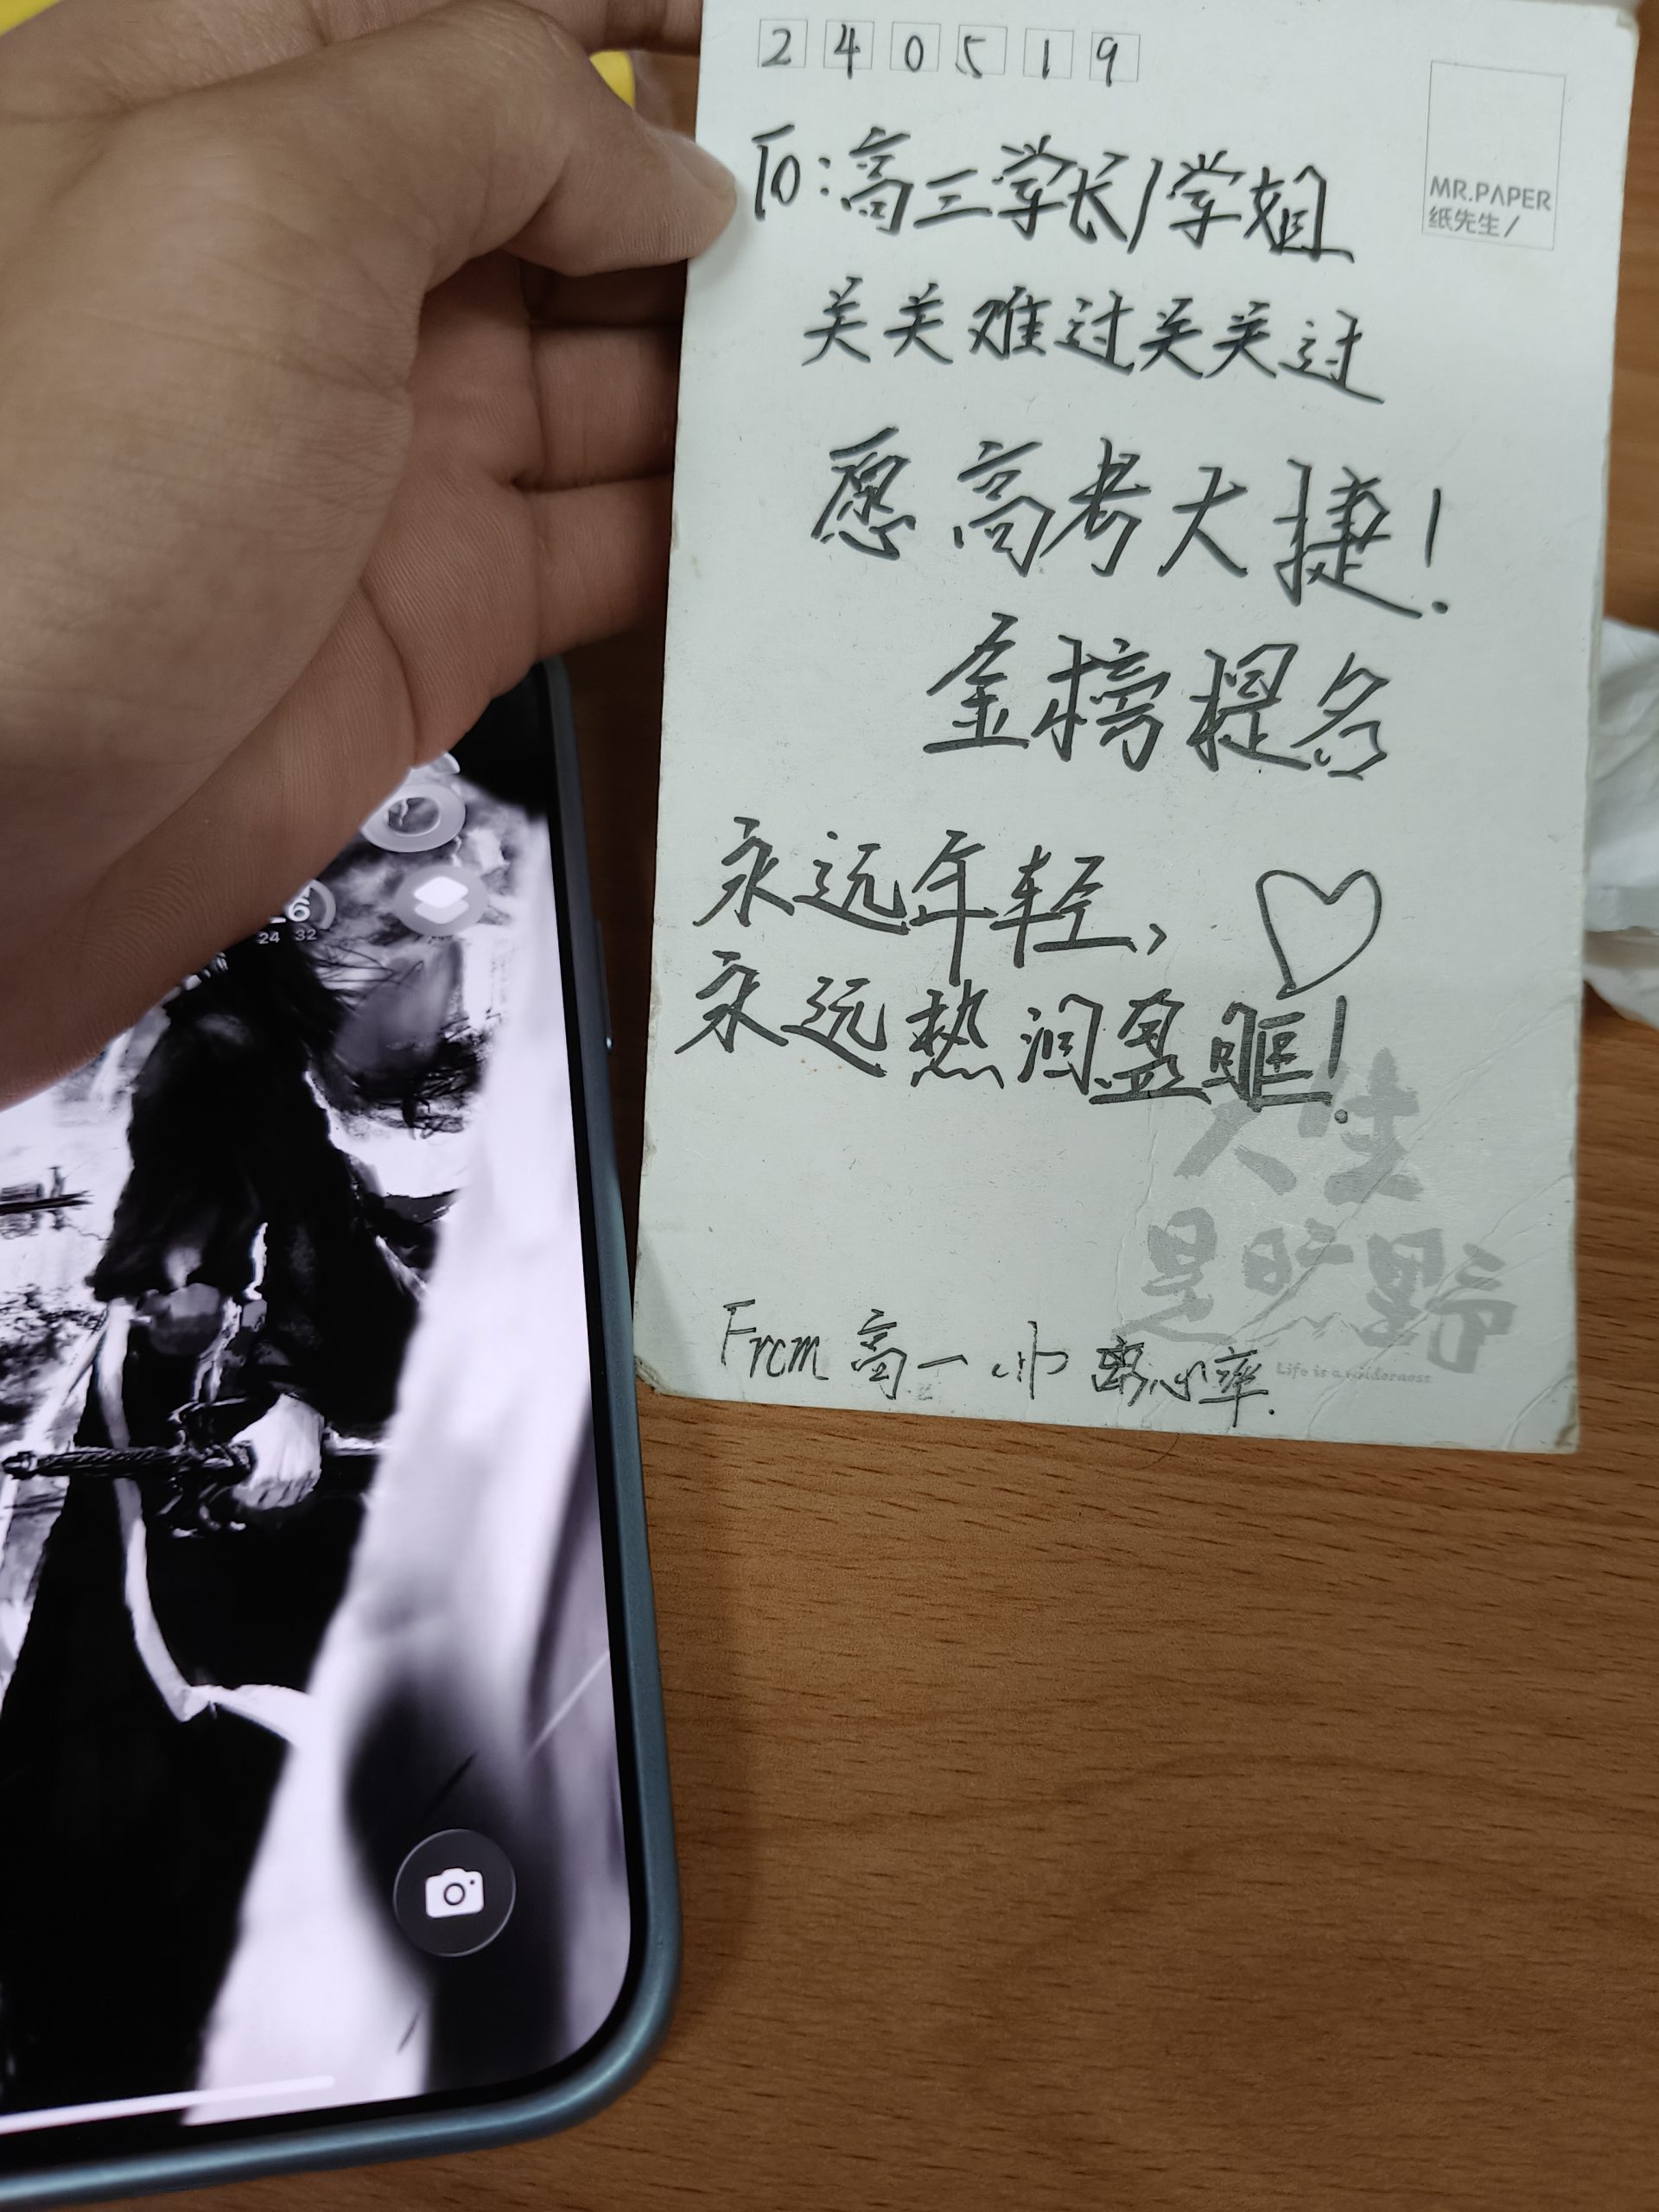 240519
To:高三学长/学姐
MR.PAPER
纸先生/
关关难过关关过
愿高考大捷!
金榜提名
永远年轻,
永远热泪盈眶!
人生
是旷野
Life is a wilderness
From 高一
6
24 32